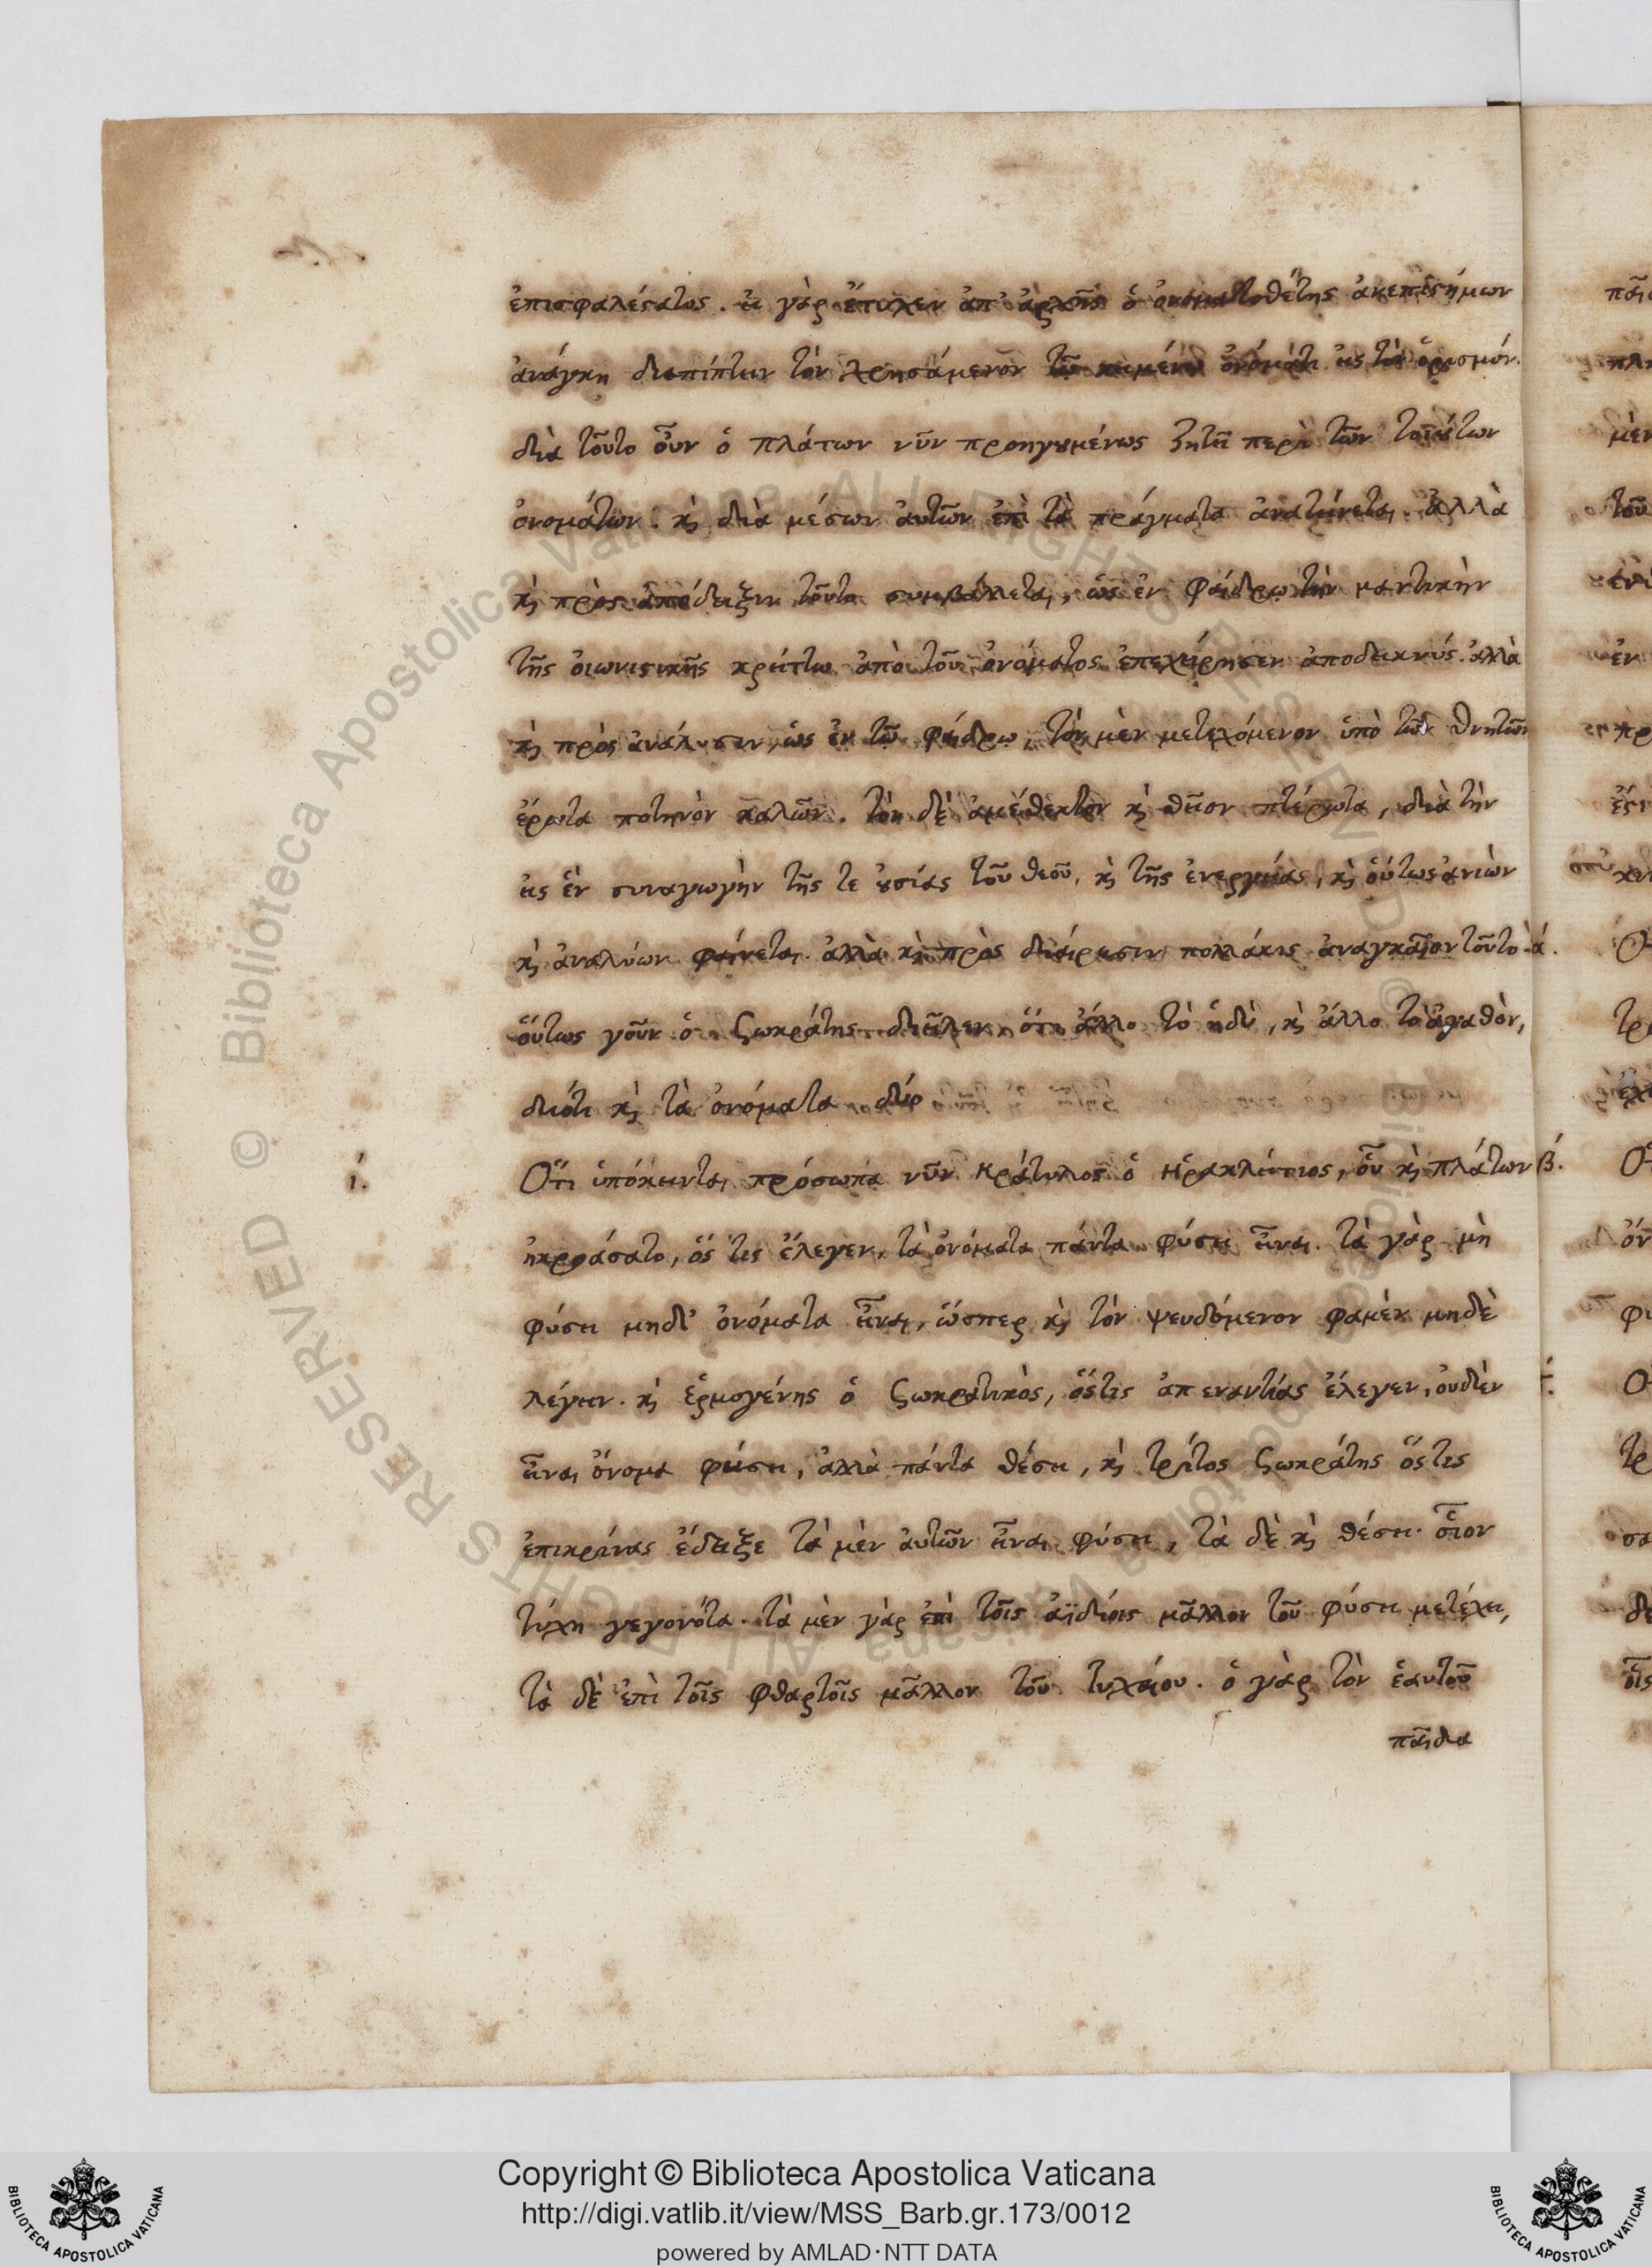 ἐπισφαλέστατος. εἰ γὰρ ἔτυχεν ἀπ' ἀρχῆς ὁ ὀνοματοθέτης ἀνεπιστήμων
ἀνάγκη διαπίπτειν τὸν χρησάμενον τῶ κειμένω ὀνόματι εἰς τὸν ὁρισμόν.
διὰ τοῦτο οὖν ὁ πλάτων νῦν προηγουμένως ζητεῖ περὶ τῶν τοιούτων
ὀνομάτων. καὶ διὰ μέσων ἀυτῶν ἐπὶ τὰ πράγματα ἀνατείνεται. ἀλλὰ
καὶ πρὸς ἀπόδειξιν τοῦτο συμβάλλεται, ὡς ἐν φαίδρω τὴν μαντικὴν
τῆς οἰωνιστικῆς κρείττω ἀπὸ τοῦ ὀνόματος ἐπεχείρησεν ἀποδεικνύς. ἀλλὰ
καὶ πρὸς ἀνάλυσιν, ὡς ἐν τῶ φαίδρω, τὸν μὲν μετεχόμενον ὑπὸ τῶν θνητῶν
ἔρωτα ποτηνὸν καλῶν. τὸν δὲ ἀμέθεκτον καὶ θεῖον πτέρωτα, διὰ τὴν
εἰς ἓν συναγωγὴν τῆς τε οὐσίας τοῦ θεοῦ, καὶ τῆς ἐνεργείας, καὶ οὕτως ἀνιὼν
καὶ ἀναλύων φαίνεται. ἀλλὰ καὶ πρὸς διαίρεσιν πολλάκις ἀναγκαῖον τοῦτο. ά.
οὕτως γοῦν ὁ Σωκράτης διεῖλεν, ὅτι ἄλλο τὸ ἡδὺ, καὶ ἄλλο τὸ ἀγαθὸν,
διότι καὶ τὰ ὀνόματα δύο
ί. Ὅτι ὑπόκεινται πρόσωπα νῦν Κράτυλος ὁ Ηρακλείτιος, οὗ καὶ πλάτων β́.
ἠκροάσατο, ὅς τις ἔλεγεν, τὰ ὀνόματα πάντα φύσει εἶναι. τὰ γὰρ μὴ
φύσει μηδ' ὀνόματα εἶναι, ὥσπερ καὶ τὸν ψευδόμενον φαμὲν μηδὲ
λέγειν. καὶ ἑρμογένης ὁ Σωκρατικὸς, ὅστις ἀπεναντίας ἔλεγεν, οὐδὲν
εἶναι ὄνομα φύσει, ἀλλὰ πάντα θέσει, καὶ τρίτος Σωκράτης ὅς τις
ἐπικρίνας ἔδειξε τὰ μὲν ἀυτῶν εἶναι φύσει, τὰ δὲ καὶ θέσει. οἷον
τύχη γεγονότα. τὰ μὲν γὰρ ἐπὶ τοῖς ἀϊδίοις μᾶλλον τοῦ φύσει μετέχει,
τὰ δὲ ἐπὶ τοῖς φθαρτοῖς μᾶλλον τοῦ τυχαίου. ὁ γὰρ τὸν ἑαυτοῦ
παῖδα
Copyright © Biblioteca Apostolica Vaticana
http://digi.vatlib.it/view/MSS_Barb.gr.173/0012
powered by AMLAD·NTT DATA
BIBLIOTECA APOSTOLICA VATICANA
BIBLIOTECA APOSTOLICA VATICANA
© Biblioteca Apostolica Vaticana ALL RIGHTS RESERVED
© Biblioteca Apostolica Vaticana ALL RIGHTS RESERVED